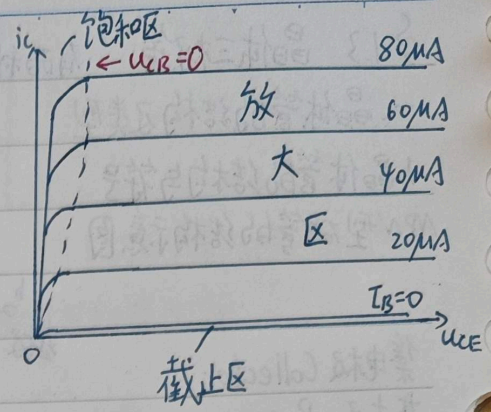 饱和区
ic
← UCB=0
80μA
放
60μA
大
40μA
区
20μA
IB=0
0
UCE
截止区